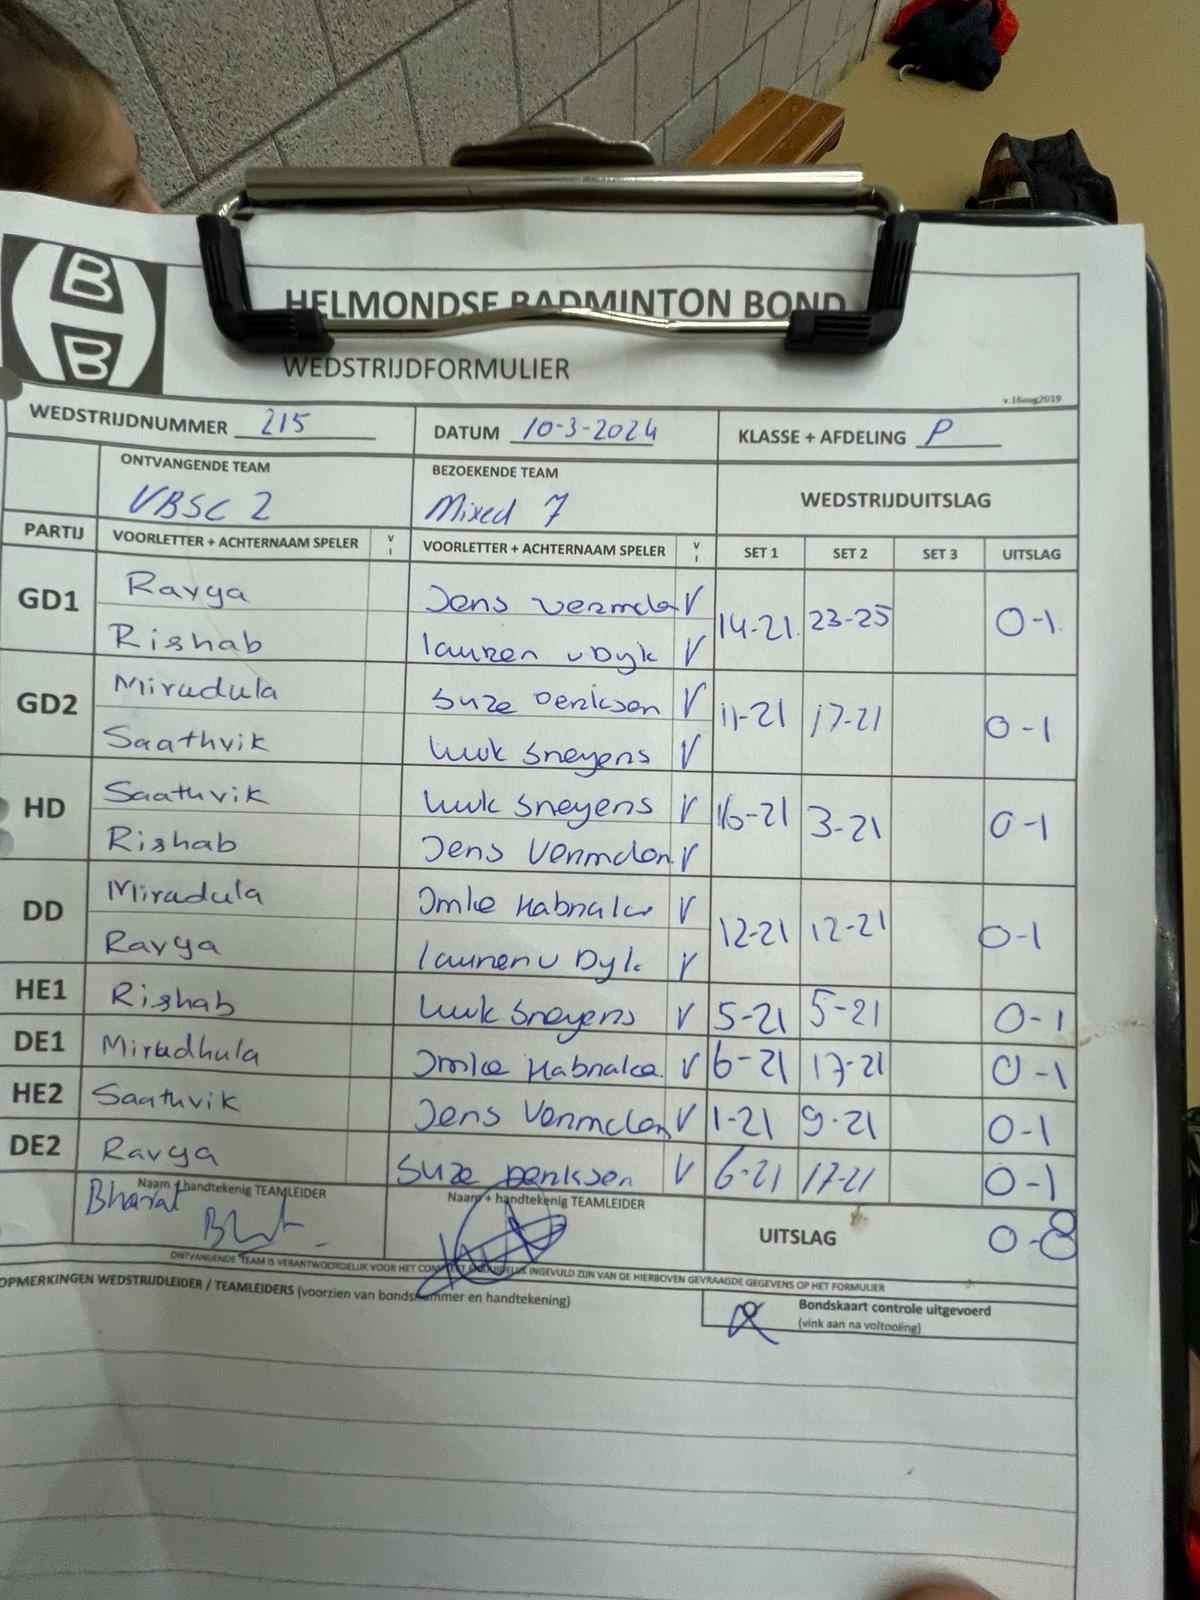 B
B
HELMONDSE BADMINTON BOND
WEDSTRIJDFORMULIER
v.16aug2019
WEDSTRIJDNUMMER 215 DATUM 10-3-2024 KLASSE + AFDELING P
ONTVANGENDE TEAM BEZOEKENDE TEAM WEDSTRIJDUITSLAG
VBSC 2 Mixed 7
PARTIJ VOORLETTER + ACHTERNAAM SPELER V I VOORLETTER + ACHTERNAAM SPELER V I SET 1 SET 2 SET 3 UITSLAG
GD1 Ravya Jens Vermclan V 14-21 23-25 0-1
Rishab lauren v Dyk V
GD2 Mirudula Suze Denkson V 11-21 17-21 0-1
Saathvik luuk Sneyens V
HD Saathvik luuk Sneyens V 16-21 3-21 0-1
Rishab Jens Vermclan V
DD Mirudula Imke V 12-21 12-21 0-1
Ravya lauren v Dyk V
HE1 Rishab luuk Sneyens V 5-21 5-21 0-1
DE1 Mirudhula Imke V 6-21 17-21 0-1
HE2 Saathvik Jens V 1-21 9-21 0-1
DE2 Ravya Suze V 6-21 17-21 0-1
Naam + handtekenig TEAMLEIDER Naam + handtekening TEAMLEIDER UITSLAG 0-8
Bharat
ONTVANGENDE TEAM IS VERANTWOORDELIJK VOOR HET INGEVULD ZIJN VAN DE HIERBOVEN GEVRAAGDE GEGEVENS OP HET FORMULIER
OPMERKINGEN WEDSTRIJDLEIDER / TEAMLEIDERS (voorzien van bondsnummer en handtekening)
Bondskaart controle uitgevoerd
(vink aan na voltooiing)